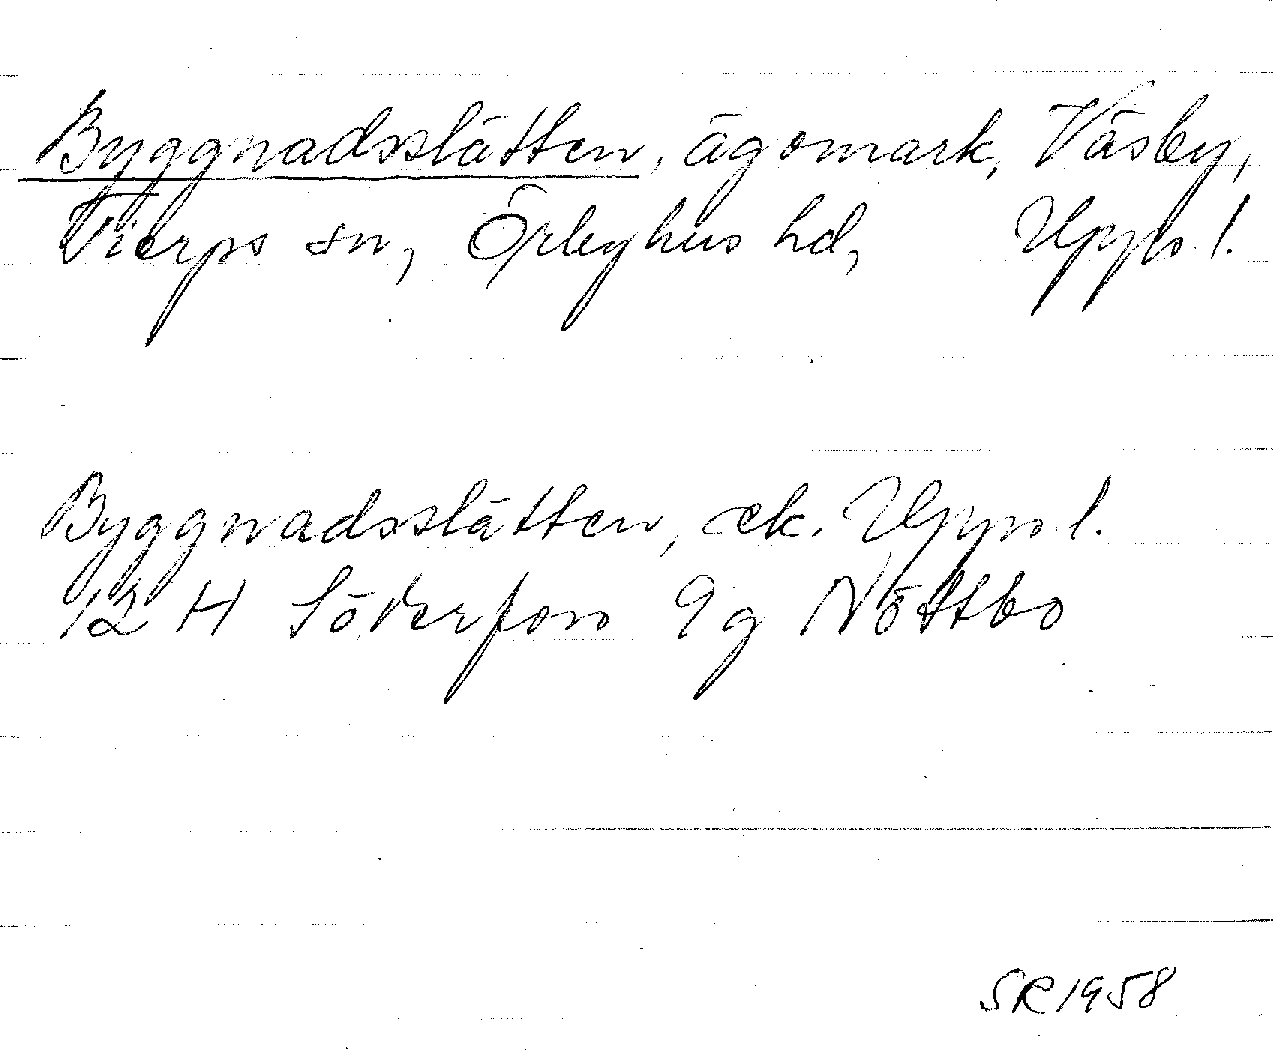 Byggnadsslätten, ägomark, Väsby,
Tierps sn, Örbyhus hd, Uppl.
Byggnadsslätten, ek. Uppl.
12 H Söderfors 9g Nöttbo
SR 1958